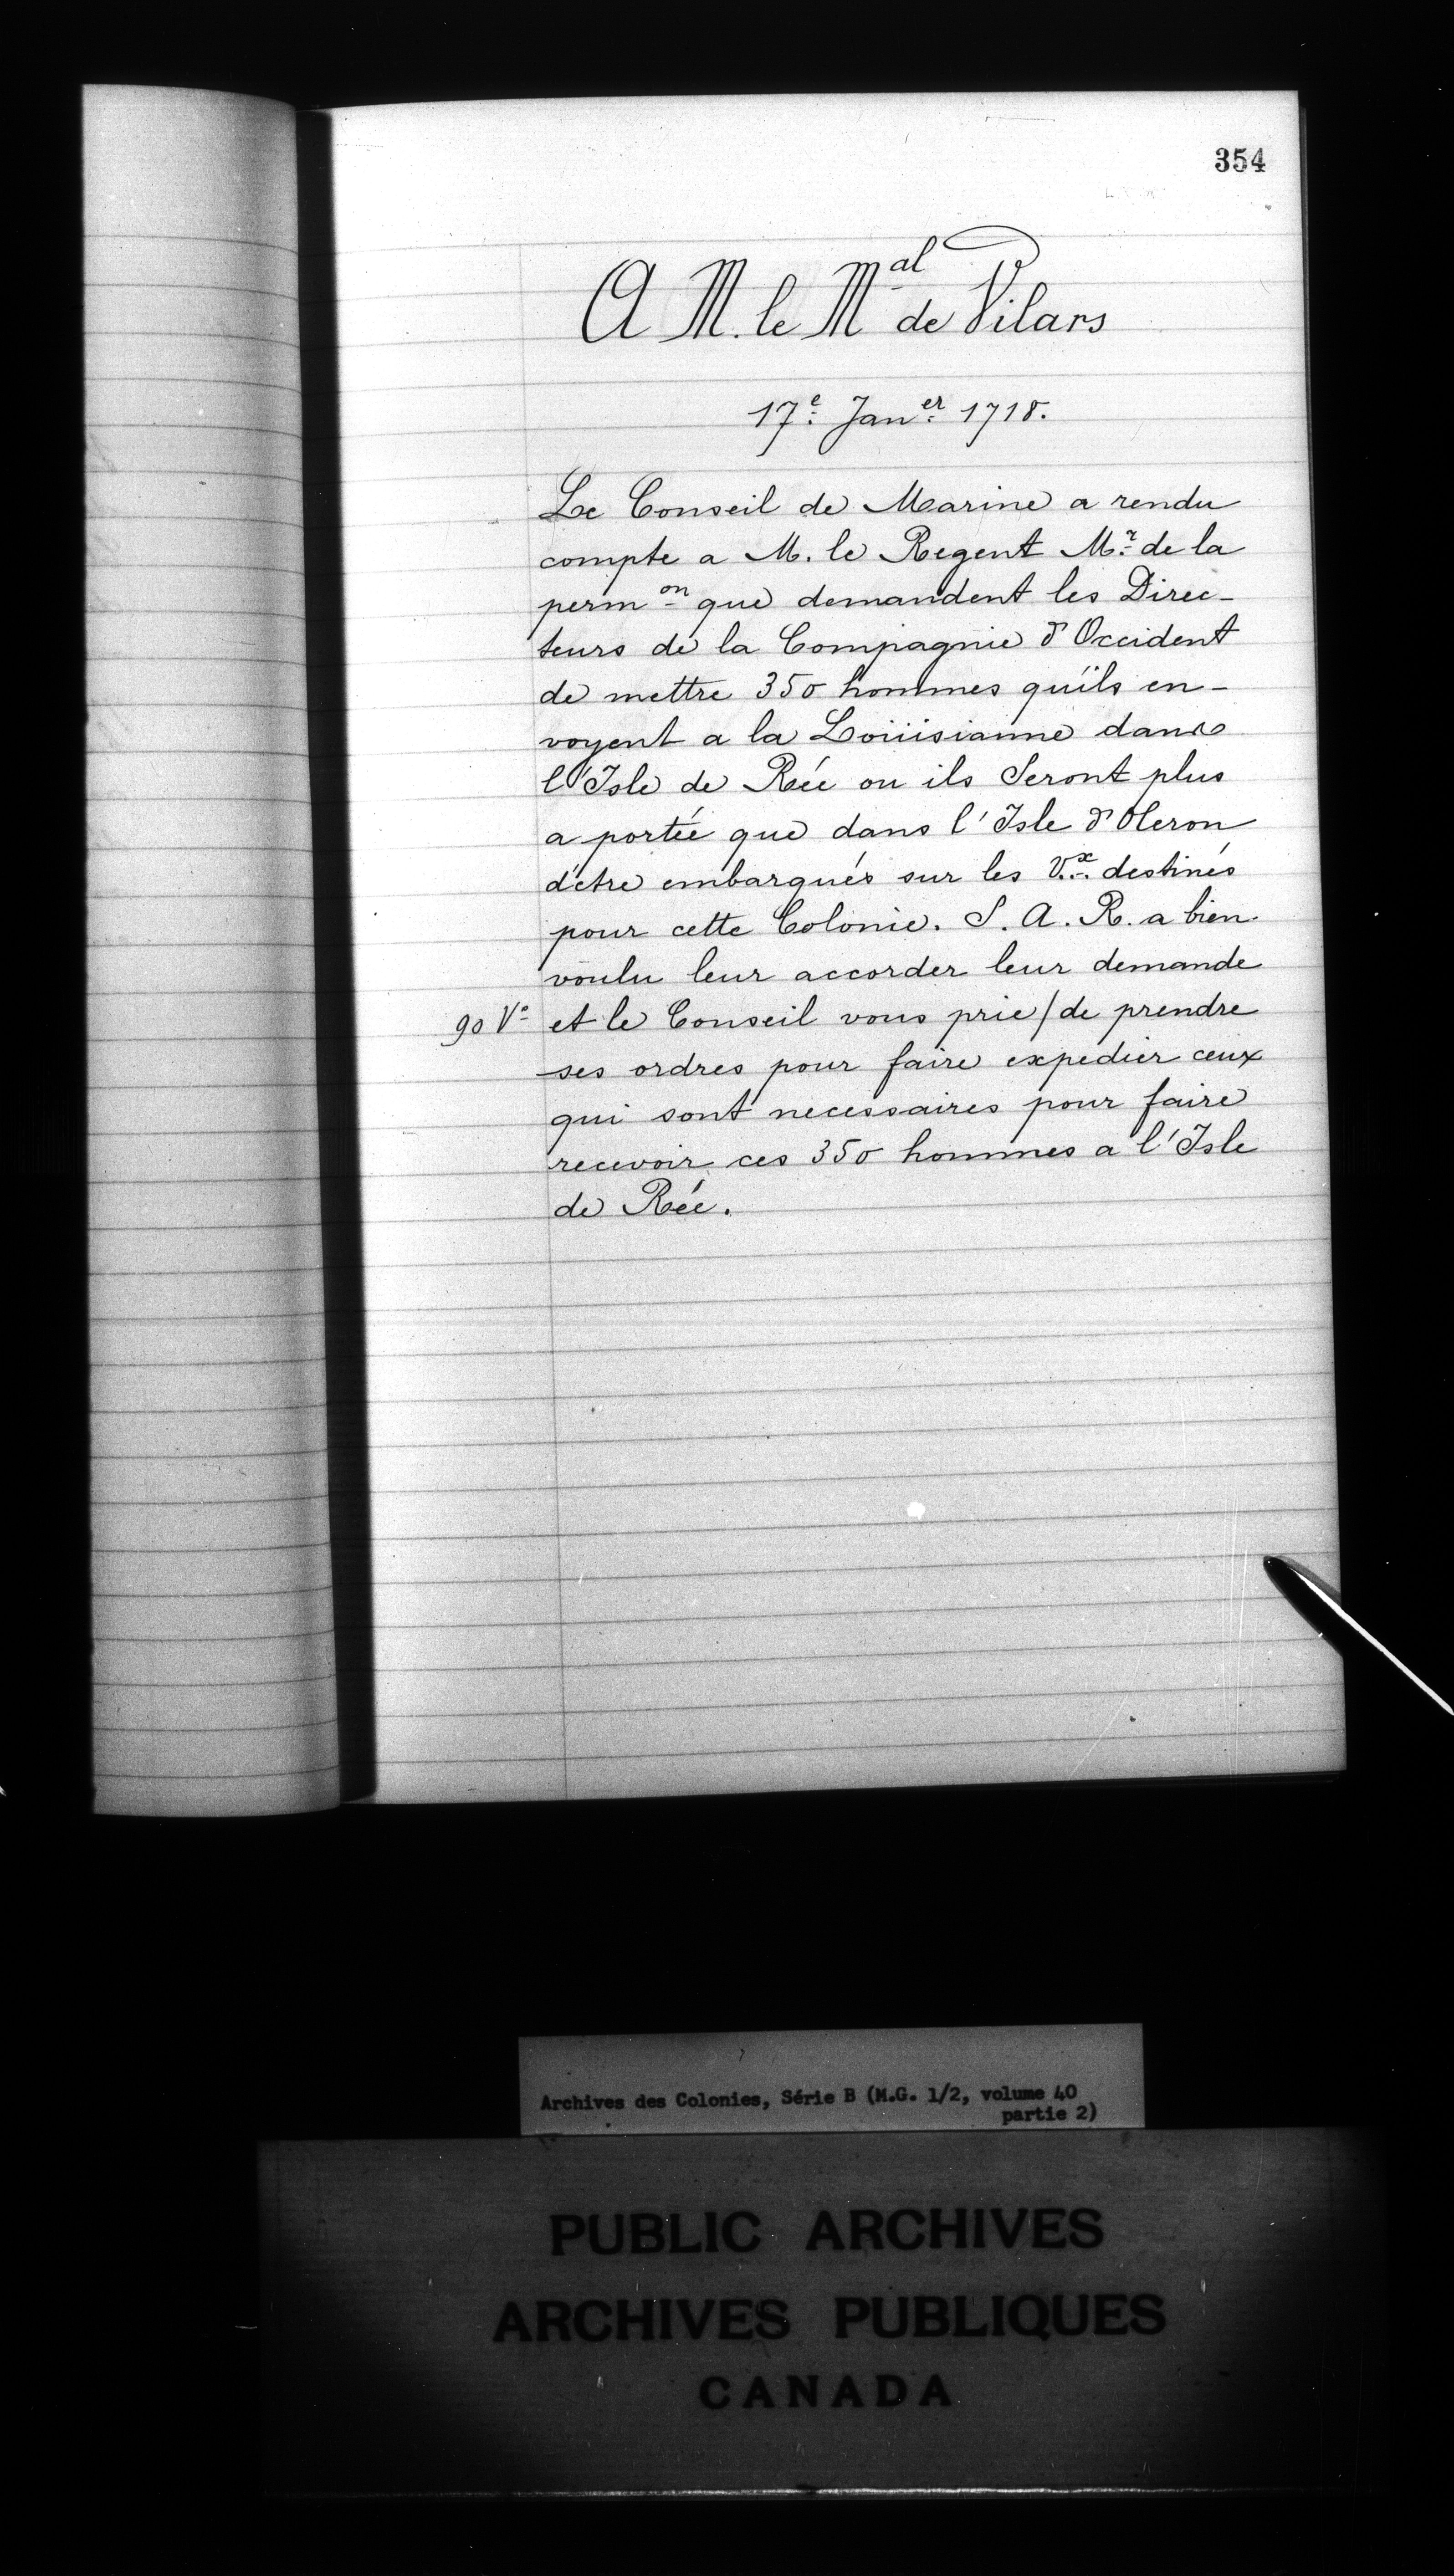 354
A M. le Mal de Vilars
17e Janer 1718.
Le Conseil de Marine a rendu
compte a M. le Regent Mr de la
permon que demandent les Direc-
teurs de la Compagnie d'Occident
de mettre 350 hommes qu'ils en-
voyent a la Loüisianne dans
l'Isle de Rée ou ils Seront plus
a portée que dans l'Isle d'Oleron
d'etre embarqués sur les V.x destinés
pour cette Colonie. S. A. R. a bien
voulu leur accorder leur demande
90 Vo et le Conseil vous prie / de prendre
ses ordres pour faire expedier ceux
qui sont necessaires pour faire
recevoir ces 350 hommes a l'Isle
de Rée.
Archives des Colonies, Série B (M.G. 1/2, volume 40
partie 2)
PUBLIC ARCHIVES
ARCHIVES PUBLIQUES
CANADA